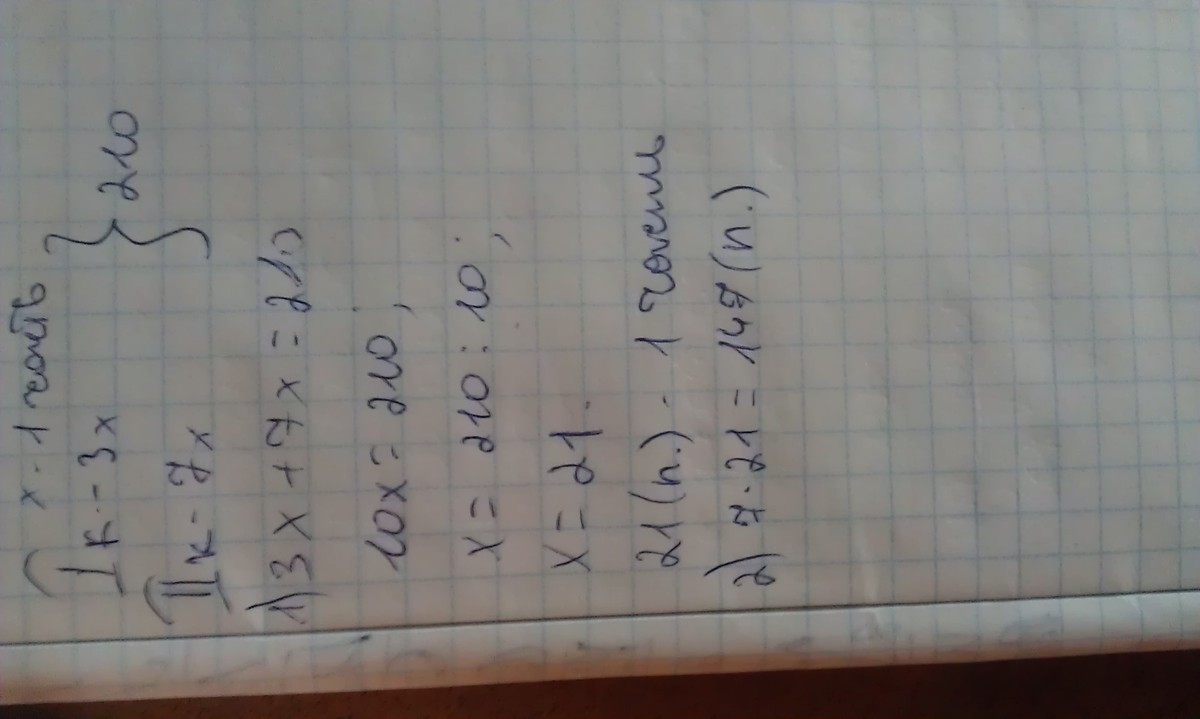 x - 1 часть
I к - 3x } 210
II к - 7x
1) 3x + 7x = 210
10x = 210 ;
x = 210 : 10 ;
x = 21.
21 (п.) - 1
2) 7 · 21 = 147 (п.)